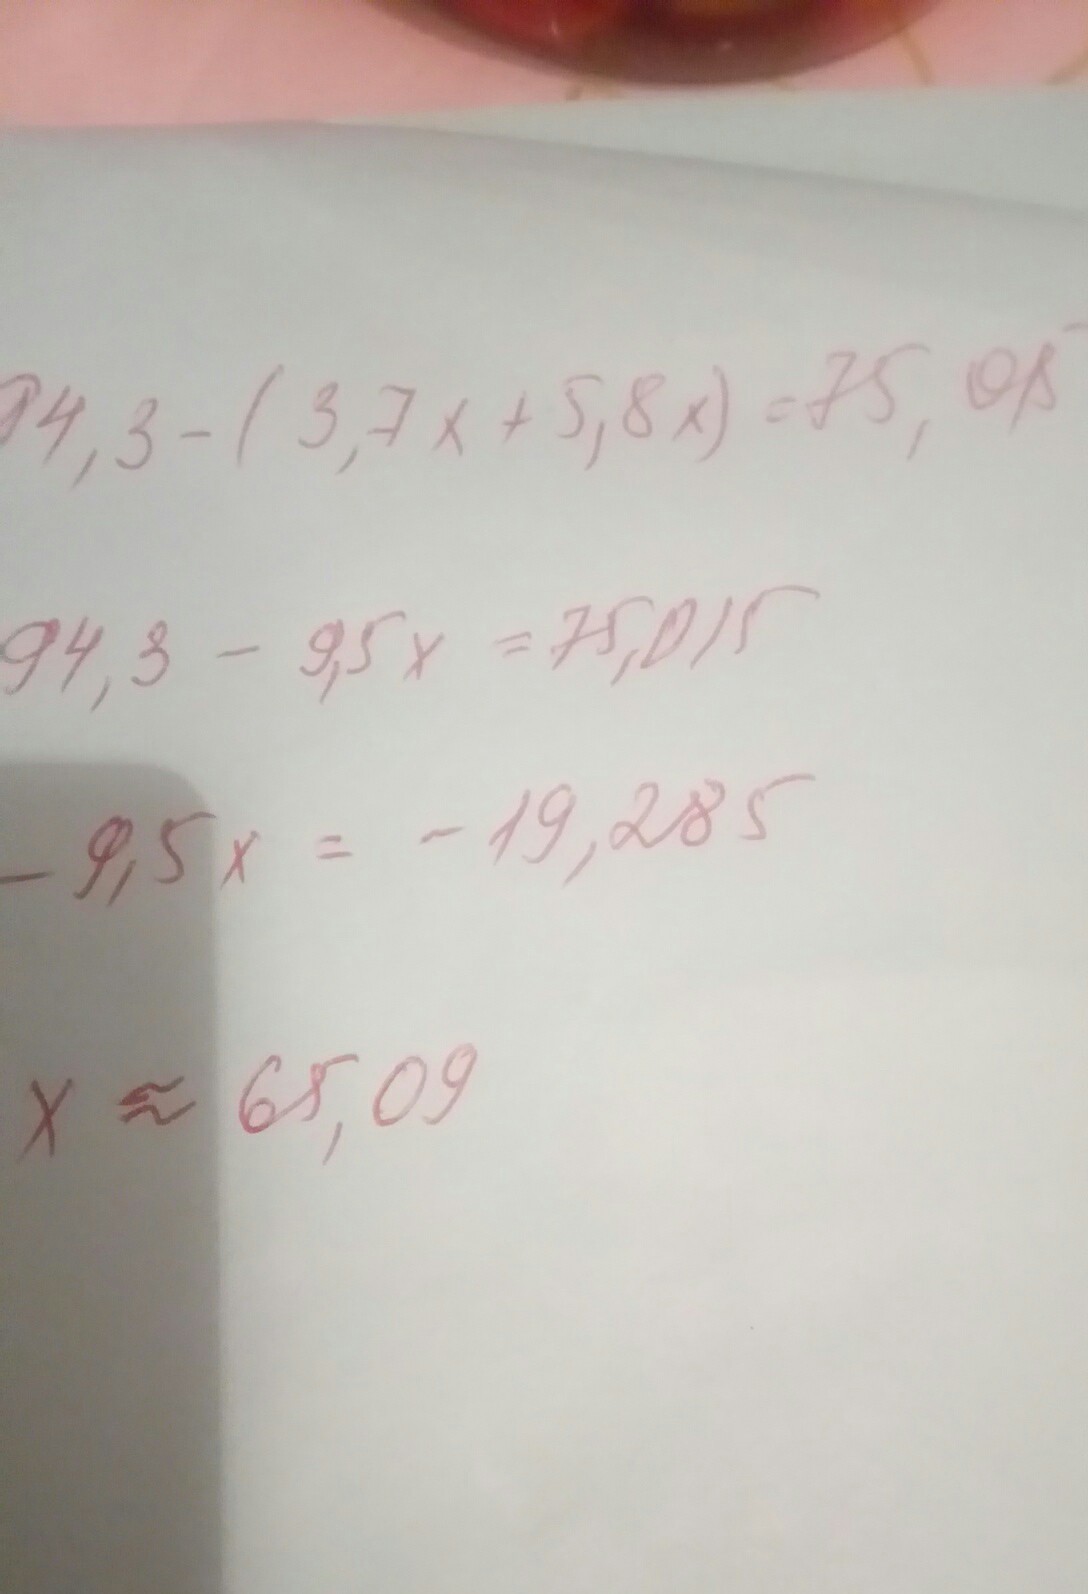 94,3 - (3,7x + 5,8x) = 75,015
94,3 - 9,5x = 75,015
- 9,5x = - 19,285
x ≈ 65,09